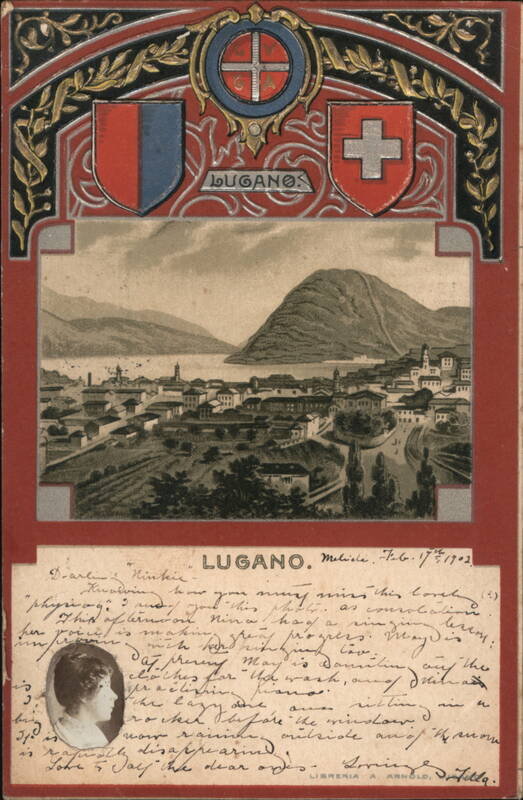 LVGA
LUGANO.
LUGANO.
Melide. Feb. 17th 1902
Darling "Ninkie"
Knowing how you must miss this lovely
"physiog." I send you this photo. as consolation. (?)
This afternoon Nina had a singing lesson;
her voice is making great progress. May is
improving with her singing too.
At present May is counting out the
clothes for the wash, and Nina
is practising piano.
I the lazy one am sitting in a
big rocker before the window.
It is now raining outside and the snow
is rapidly disappearing.
Love to all the dear ones. Lovingly
Stella.
LIBRERIA A. ARNOLD,